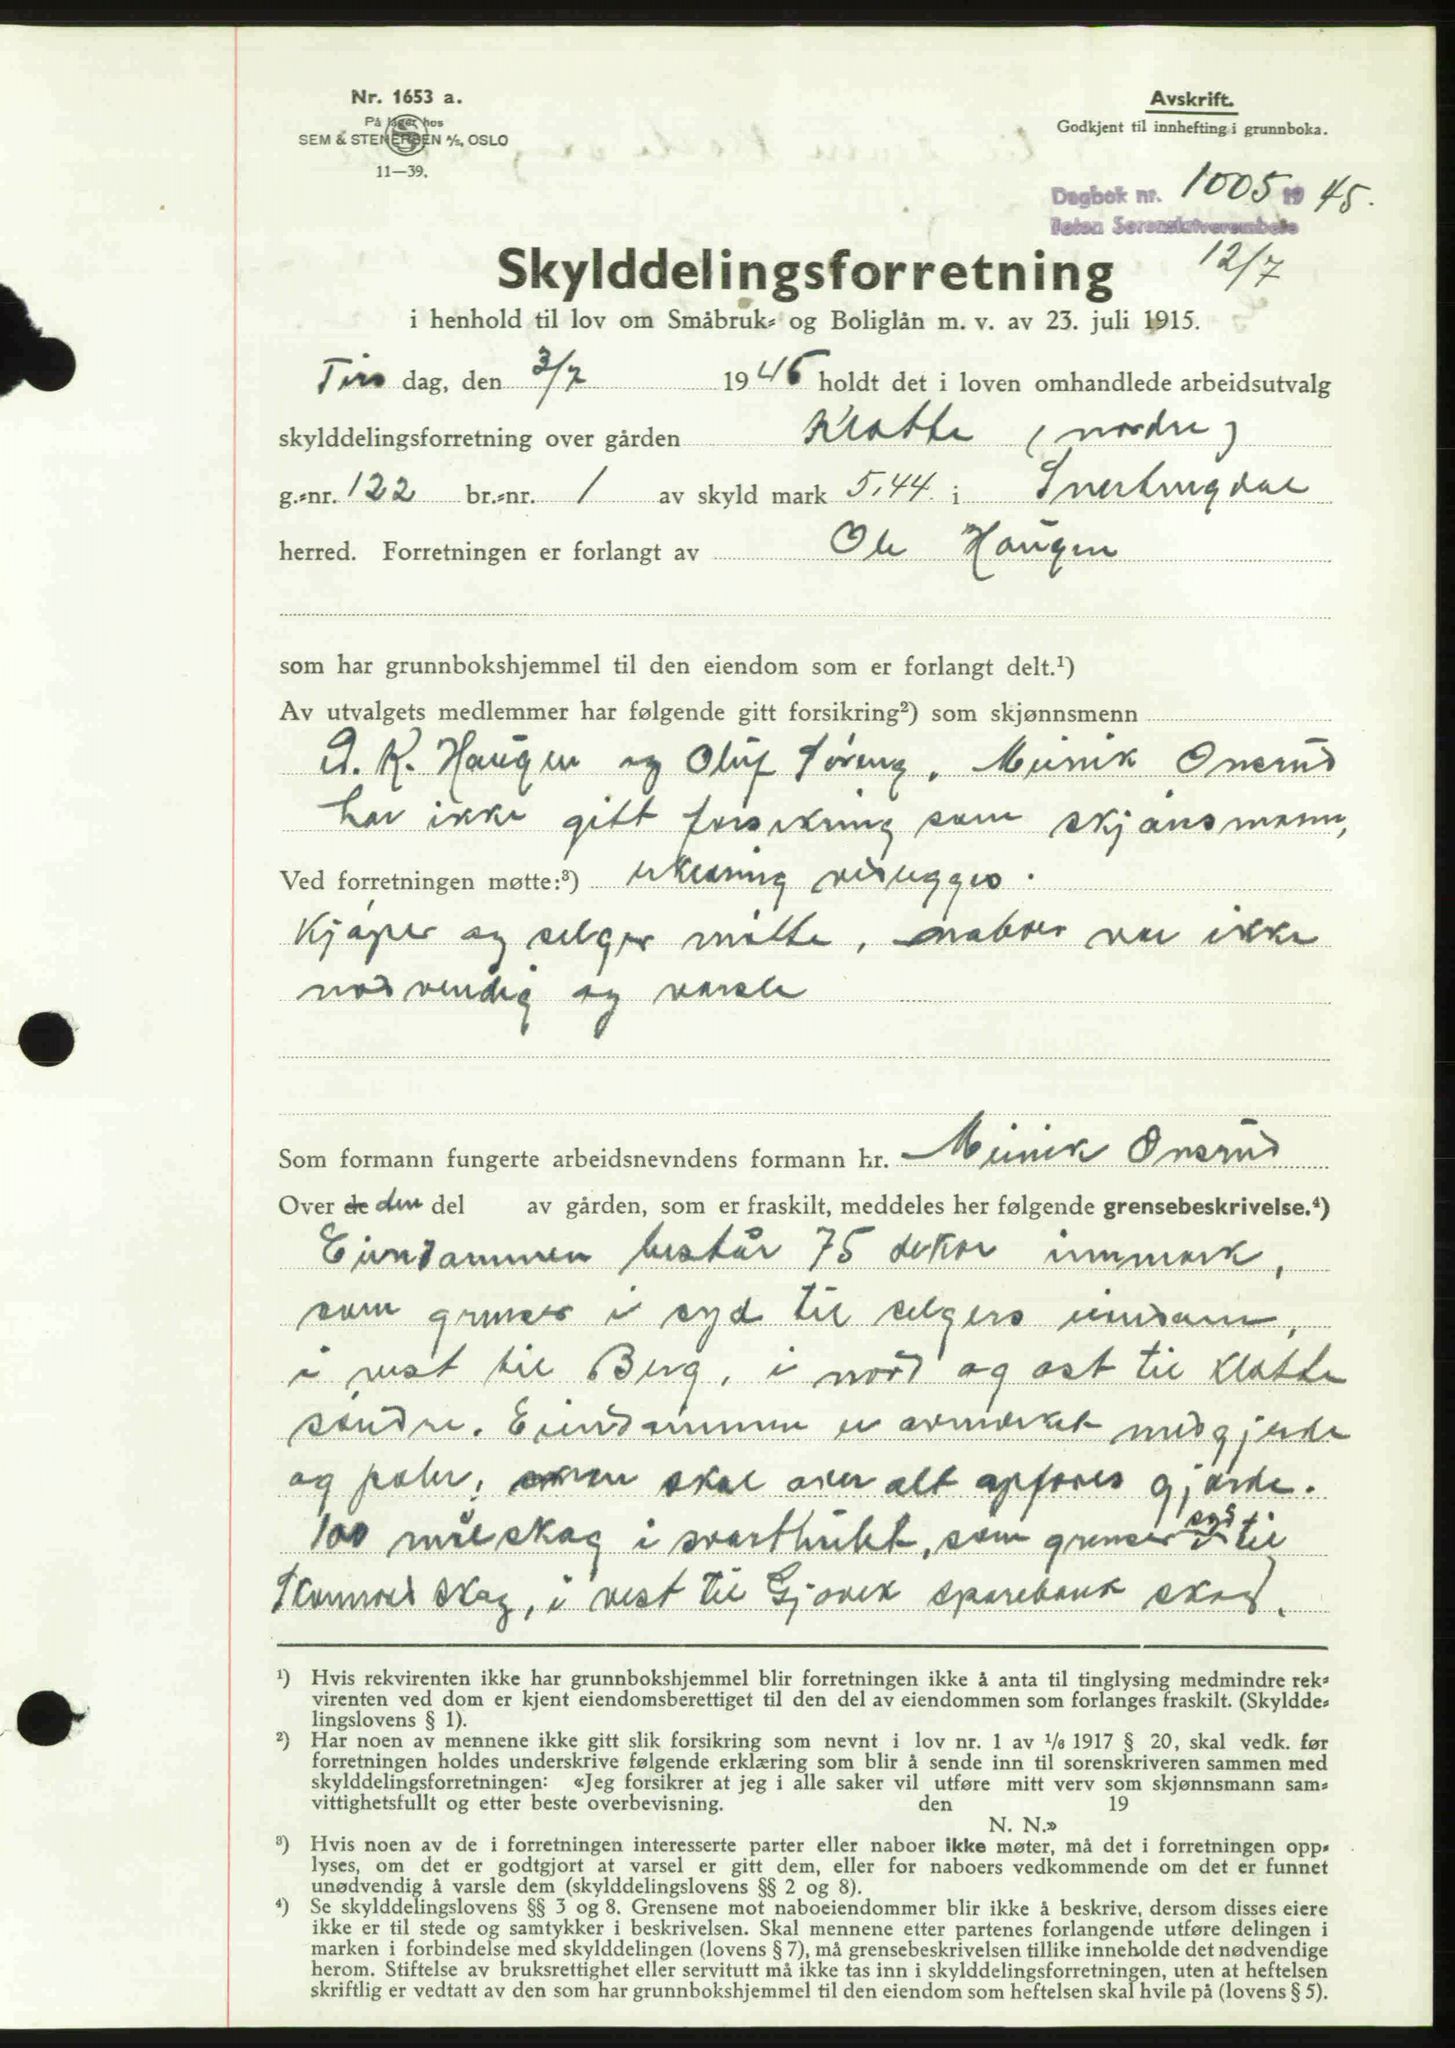 Nr. 1653 a.
På lager hos
SEM & STENERSEN A/S, OSLO
11—39.
Avskrift.
Godkjent til innhefting i grunnboka.
Dagbok nr. 1005 19 45.
Toten Sorenskriverembete
12/7
Skylddelingsforretning
i henhold til lov om Småbruk= og Boliglån m. v. av 23. juli 1915.
Tirs dag, den 3/7 1945 holdt det i loven omhandlede arbeidsutvalg
skylddelingsforretning over gården Klette (nordre)
g.=nr. 122 br.=nr. 1 av skyld mark 5,44 i Snertingdal
herred. Forretningen er forlangt av Ole Haugen
som har grunnbokshjemmel til den eiendom som er forlangt delt.¹)
Av utvalgets medlemmer har følgende gitt forsikring²) som skjønnsmenn
K. Haugen og Oluf Søreng. Meinik Onsrud
har ikke gitt forsikring som skjønsmann,
Ved forretningen møtte:³) erklæring vedlegges.
Kjøper og selger møtte, naboer var ikke
nødvendig og varsle
Som formann fungerte arbeidsnevndens formann hr. Meinik Onsrud
Over de den del av gården, som er fraskilt, meddeles her følgende grensebeskrivelse.⁴)
Eiendommen består 75 dekar innmark,
som grenser i syd til selgers eiendom,
i vest til Berg, i nord og øst til Klette
søndre. Eiendommen er avmerket med gjerde
og peler, skal over alt opføres gjerde.
100 mål skog i svarthullet, som grenser i syd til
skog, i vest til Gjøvik sparebank skog,
¹) Hvis rekvirenten ikke har grunnbokshjemmel blir forretningen ikke å anta til tinglysing medmindre rek=
virenten ved dom er kjent eiendomsberettiget til den del av eiendommen som forlanges fraskilt. (Skyldde=
lingslovens § 1).
²) Har noen av mennene ikke gitt slik forsikring som nevnt i lov nr. 1 av 1/6 1917 § 20, skal vedk. før
forretningen holdes underskrive følgende erklæring som blir å sende inn til sorenskriveren sammen med
skylddelingsforretningen: «Jeg forsikrer at jeg i alle saker vil utføre mitt verv som skjønnsmann sam=
vittighetsfullt og etter beste overbevisning. den 19
N. N.»
³) Hvis noen av de i forretningen interesserte parter eller naboer ikke møter, må det i forretningen opp=
lyses, om det er godtgjort at varsel er gitt dem, eller for naboers vedkommende om det er funnet
unødvendig å varsle dem (skylddelingslovens §§ 2 og 8).
⁴) Se skylddelingslovens §§ 3 og 8. Grensene mot naboeiendommer blir ikke å beskrive, dersom disses eiere
ikke er til stede og samtykker i beskrivelsen. Skal mennene etter partenes forlangende utføre delingen i
marken i forbindelse med skylddelingen (lovens § 7), må grensebeskrivelsen tillike inneholde det nødvendige
herom. Stiftelse av bruksrettighet eller servitutt må ikke tas inn i skylddelingsforretningen, uten at heftelsen
skriftlig er vedtatt av den som har grunnbokshjemmel til den eiendom som heftelsen skal hvile på (lovens § 5).